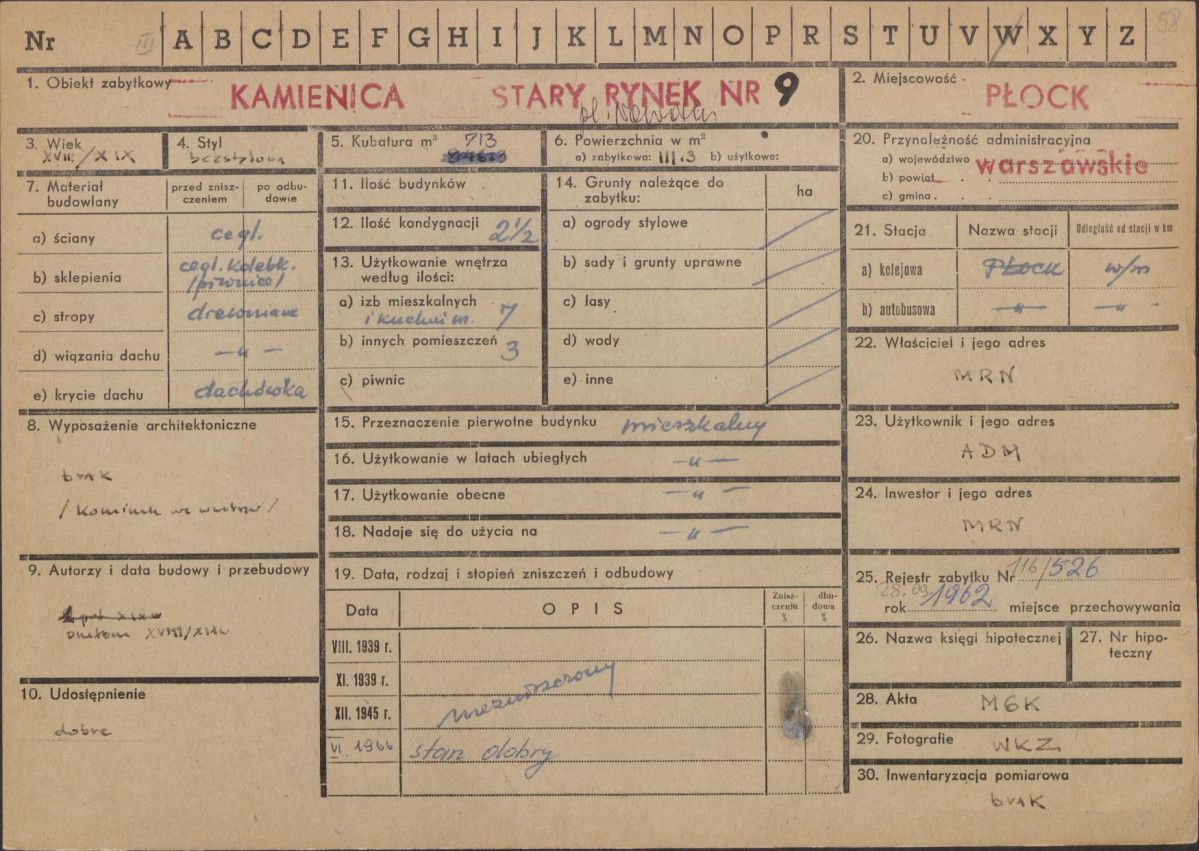 Nr III A B C D E F G H I J K L M N O P R S T U V W X Y Z 58
1. Obiekt zabytkowy KAMIENICA STARY RYNEK NR 9
2. Miejscowość PŁOCK
3. Wiek XVIII/XIX
4. Styl bezstylowa
5. Kubatura m³ 713
6. Powierzchnia w m²
a) zabytkowa: 111,3 b) użytkowa:
7. Materiał budowlany
przed zniszczeniem
po odbudowie
a) ściany cegl.
b) sklepienia cegl. kolebk.
/piwnice/
c) stropy drewniane
d) wiązania dachu —„—
e) krycie dachu dachówka
8. Wyposażenie architektoniczne
brak
/kominek we wnętrzu/
9. Autorzy i data budowy i przebudowy
XVIII/XIX
10. Udostępnienie
dobre
11. Ilość budynków
12. Ilość kondygnacji 2½
13. Użytkowanie wnętrza
według ilości:
a) izb mieszkalnych
i kuchni m. 7
b) innych pomieszczeń 3
c) piwnic
14. Grunty należące do
zabytku:
ha
a) ogrody stylowe
b) sady i grunty uprawne
c) lasy
d) wody
e) inne
15. Przeznaczenie pierwotne budynku mieszkalny
16. Użytkowanie w latach ubiegłych —„—
17. Użytkowanie obecne —„—
18. Nadaje się do użycia na —„—
19. Data, rodzaj i stopień zniszczeń i odbudowy
Data OPIS Zniszczenia % dbudowa %
VIII. 1939 r.
XI. 1939 r. niezniszczony
XII. 1945 r.
VI 1966 stan dobry
20. Przynależność administracyjna
a) województwo warszawskie
b) powiat
c) gmina
21. Stacja Nazwa stacji Odległość od stacji w km
a) kolejowa PŁOCK w/m
b) autobusowa —„— —„—
22. Właściciel i jego adres
MRN
23. Użytkownik i jego adres
ADM
24. Inwestor i jego adres
MRN
25. Rejestr zabytku Nr 116/526
28.09. rok 1962 miejsce przechowywania
26. Nazwa księgi hipotecznej
27. Nr hipoteczny
28. Akta MGK
29. Fotografie WKZ
30. Inwentaryzacja pomiarowa
brak